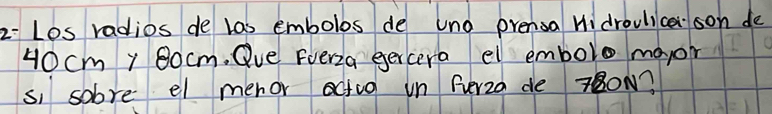 2- Los radios de las embolos de una prensa Hidroulica son de
40cm y 80cm. Que Fuerza egercera el embolo mayor
si sobre el menor actua un fuerza de 780N?